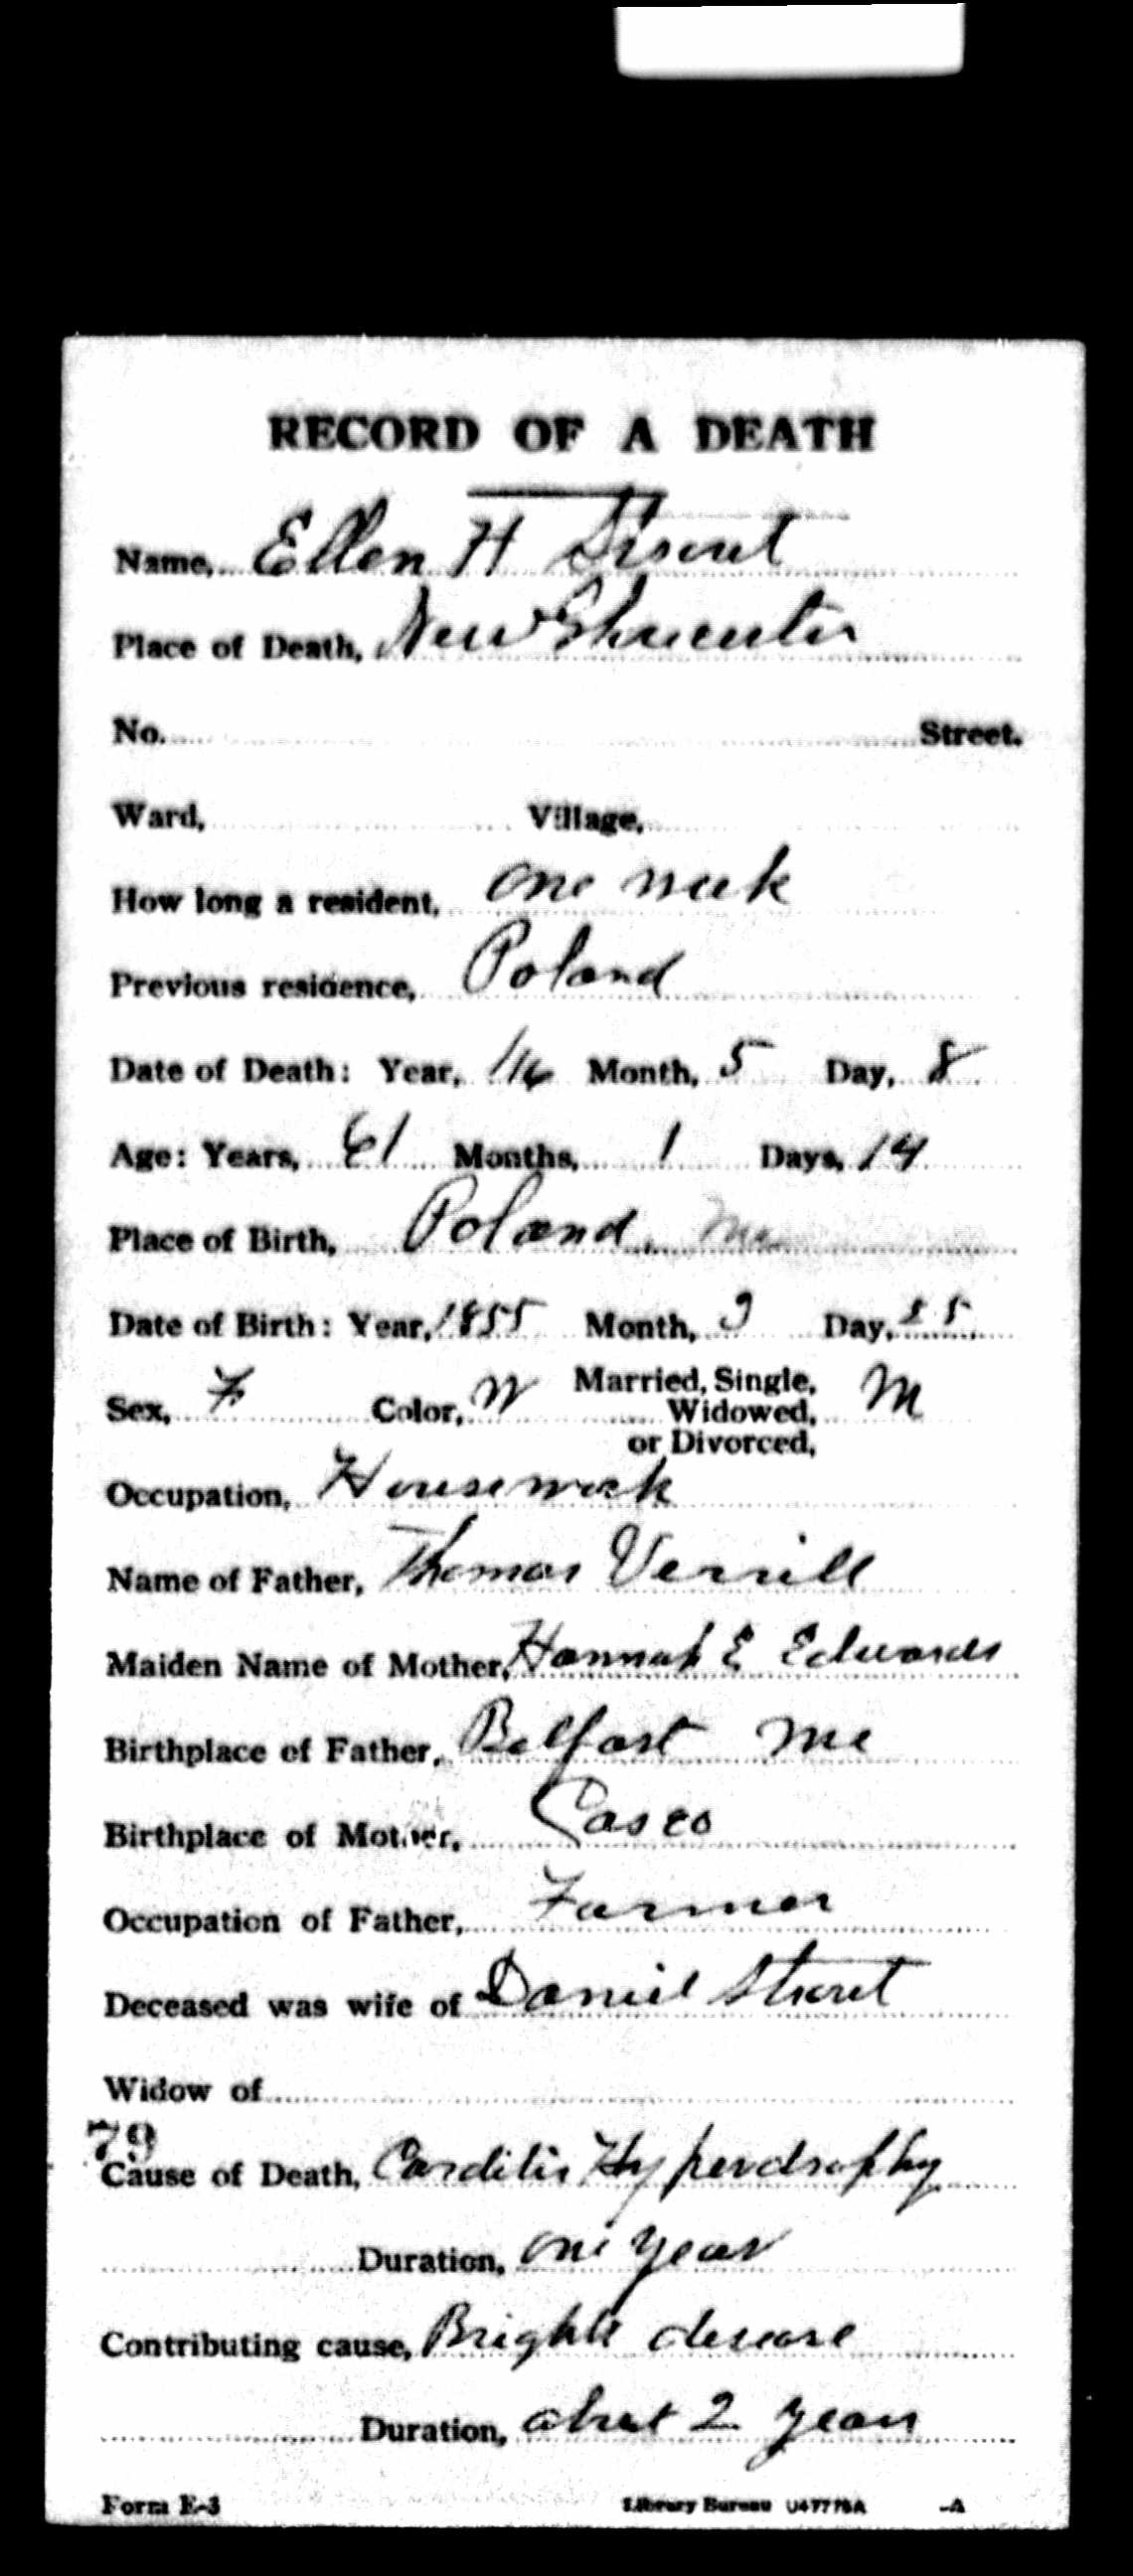 RECORD OF A DEATH
Name, Ellen H Strout
Place of Death, New Gloucester
No. Street.
Ward, Village,
How long a resident, one week
Previous residence, Poland
Date of Death: Year, 1916 Month, 5 Day, 8
Age: Years, 61 Months, 1 Days, 14
Place of Birth, Poland, Me
Date of Birth: Year, 1855 Month, 3 Day, 25
Sex, F Color, W Married, Single, M
Widowed,
or Divorced,
Occupation, Housework
Name of Father, Thomas Verrill
Maiden Name of Mother, Hannah E Edwards
Birthplace of Father, Belfast Me
Birthplace of Mother, Casco
Occupation of Father, Farmer
Deceased was wife of Daniel Strout
Widow of
79
Cause of Death, Carditis Hyperdrophy
Duration, one year
Contributing cause, Brights disease
Duration, about 2 years
Form E-3 Library Bureau U47778A -A